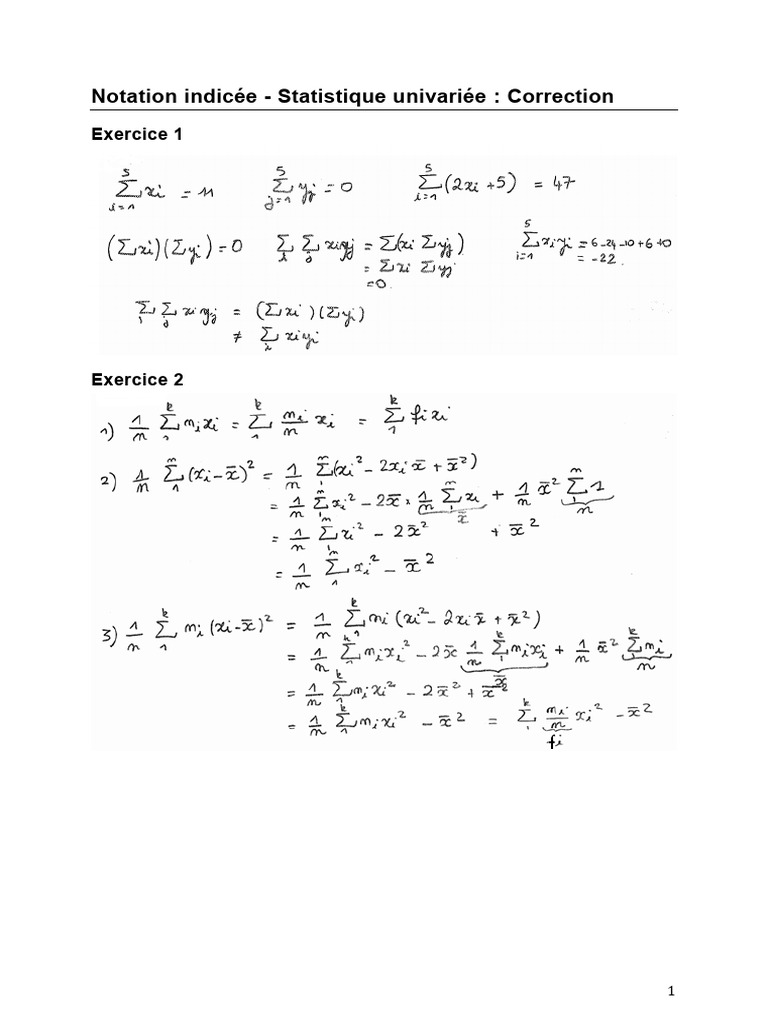 Notation indicée - Statistique univariée : Correction
Exercice 1
∑_{i=1}^{5} xi = 11    ∑_{j=1}^{5} yj = 0    ∑_{i=1}^{5} (2xi + 5) = 47
(∑xi)(∑yi) = 0    ∑_i ∑_j xiyj = ∑(xi ∑yj)    ∑_{i=1}^{5} xiyi = 6-24-10+6+0
= ∑xi ∑yj    = -22.
= 0.
∑_i ∑_j xiyj = (∑xi)(∑yi)
≠ ∑_i xiyi
Exercice 2
1) 1/n ∑_1^k nixi = ∑_1^k ni/n xi = ∑_1^k fixi
2) 1/n ∑_1^n (xi - x̄)² = 1/n ∑_1^n (xi² - 2xi x̄ + x̄²)
= 1/n ∑_1^n xi² - 2x̄ × 1/n ∑_1^n xi + 1/n x̄² ∑_1^n 1
x̄    n
= 1/n ∑_1^n xi² - 2x̄² + x̄²
= 1/n ∑_1^n xi² - x̄²
3) 1/n ∑_1^k ni (xi - x̄)² = 1/n ∑_1^k ni (xi² - 2xi x̄ + x̄²)
= 1/n ∑_1^k nixi² - 2x̄ 1/n ∑_1^k nixi + 1/n x̄² ∑_1^k ni
x̄    n
= 1/n ∑_1^k nixi² - 2x̄² + x̄²
= 1/n ∑_1^k nixi² - x̄² = ∑_1^k ni/n xi² - x̄²
fi
1